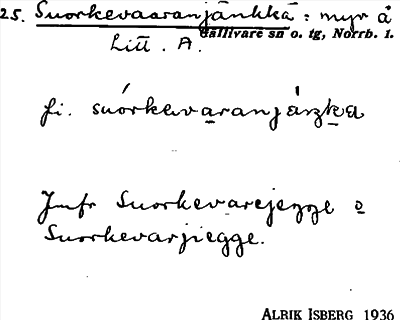 25. Suorkevaaranjänkkä: myr å
Gällivare sn o. tg, Norrb. l.
Litt. A.
fi. suórkevaranjáŋka
Jmfr Suorkevarejegge o
Suorkevarjiegge.
ALRIK ISBERG 1936